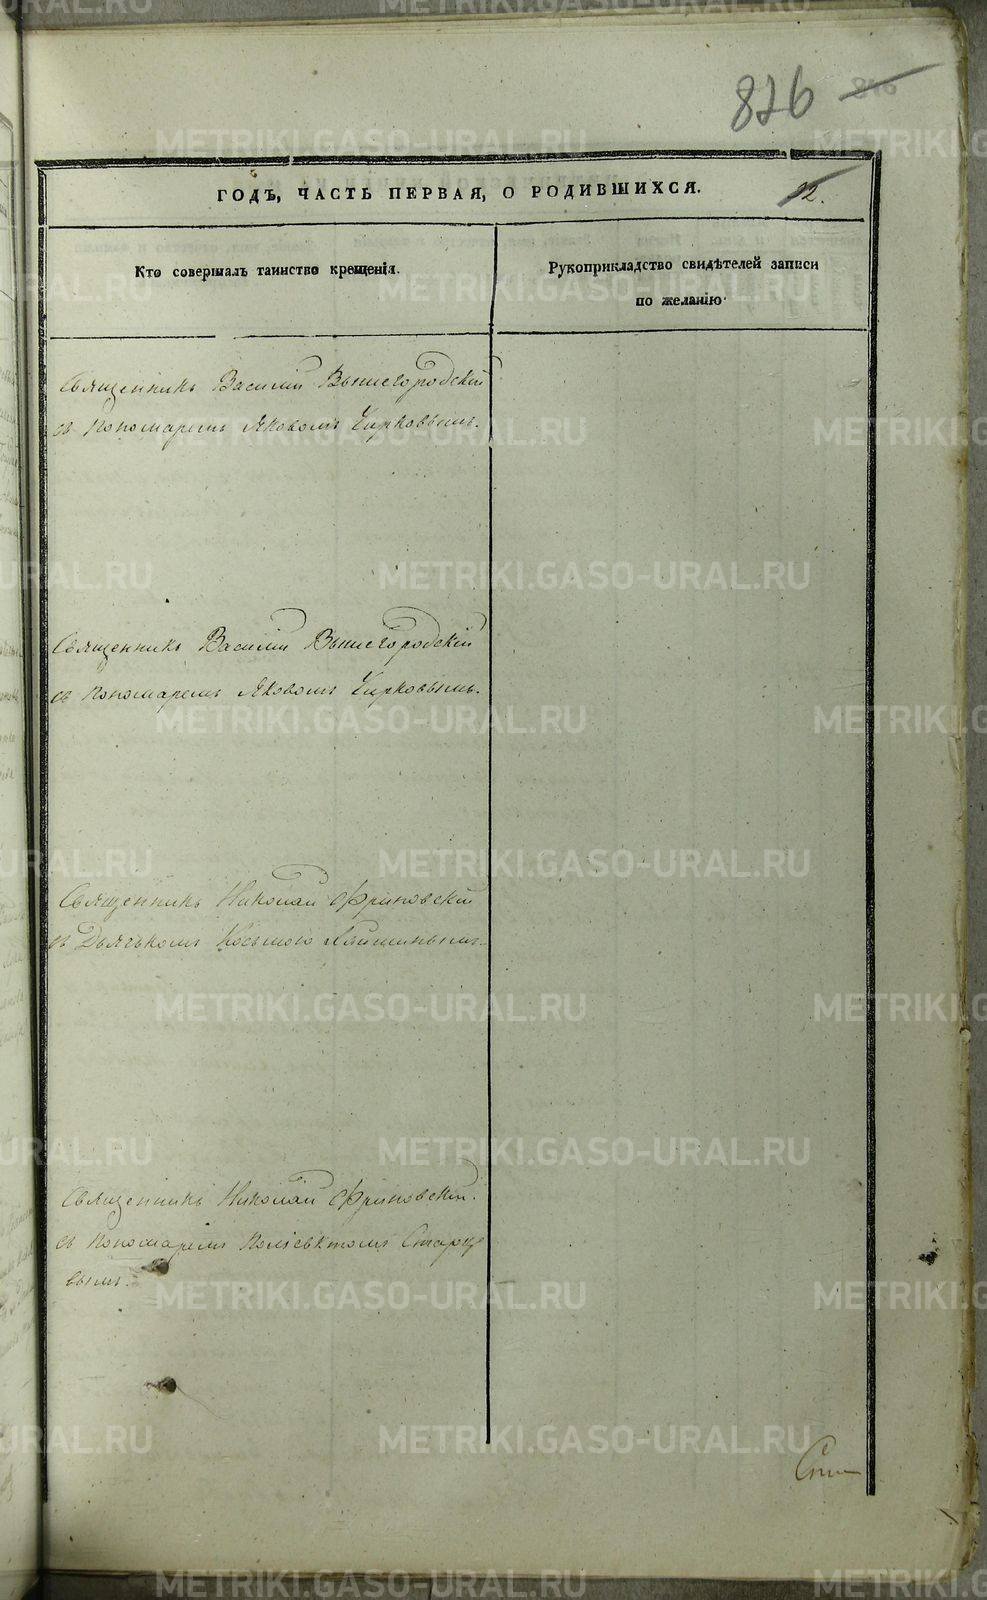 826 816
ГОДЪ, ЧАСТЬ ПЕРВАЯ, О РОДИВШИХСЯ. 12.
Кто совершалъ таинство крещенія.
Рукоприкладство свидѣтелей записи
по желанію
Священникъ Василій Вышегородскій
съ Пономаремъ Яковомъ Чирковымъ.
Священникъ Василій Вышегородскій
съ Пономаремъ Яковомъ Чирковымъ.
Священникъ Николай Фриновскій
съ Дьячкомъ Косьмою
Священникъ Николай Фриновскій.
съ Пономаремъ Поліевктомъ Старце
вымъ.
METRIKI.GASO-URAL.RU